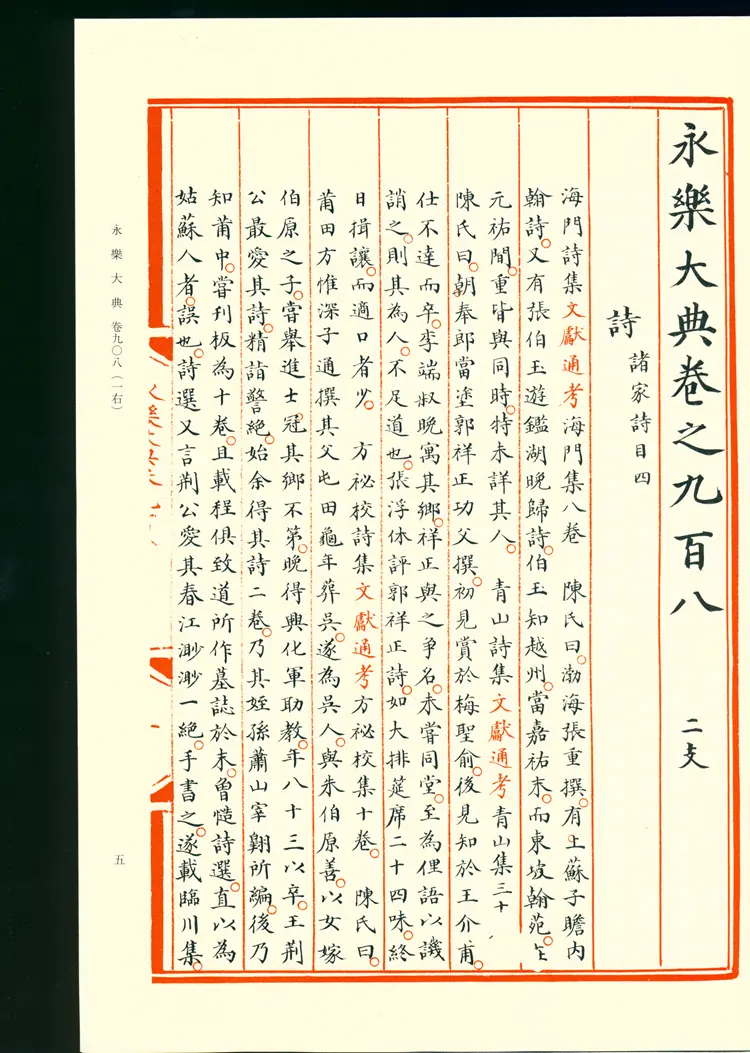 永樂大典卷之九百八 二支
詩 諸家詩目四
海門詩集文獻通考海門集八卷 陳氏曰渤海張重撰有上蘇子瞻內
翰詩又有張伯玉遊鑑湖晚歸詩伯玉知越州當嘉祐末而東坡翰苑在
元祐間重皆與同時特未詳其人 青山詩集文獻通考青山集三十
陳氏曰朝奉郎當塗郭祥正功父撰初見賞於梅聖俞後見知於王介甫
仕不達而卒李端叔晚寓其鄉祥正與之爭名未嘗同堂至為俚語以譏
誚之則其為人不足道也張浮休評郭祥正詩如大排筵席二十四味終
日揖讓而適口者少 方祕校詩集文獻通考方祕校集十卷 陳氏曰
莆田方惟深子通撰其父屯田龜年葬吳遂為吳人與朱伯原善以女嫁
伯原之子嘗舉進士冠其鄉不第晚得興化軍助教年八十三以卒王荆
公最愛其詩精詣警絕始余得其詩二卷乃其姪孫蕭山宰翺所編後乃
知莆中嘗刊板為十卷且載程俱致道所作墓誌於末曾慥詩選直以為
姑蘇人者誤也詩選又言荆公愛其春江渺渺一絕手書之遂載臨川集
永樂大典 卷九〇八（一右）
五